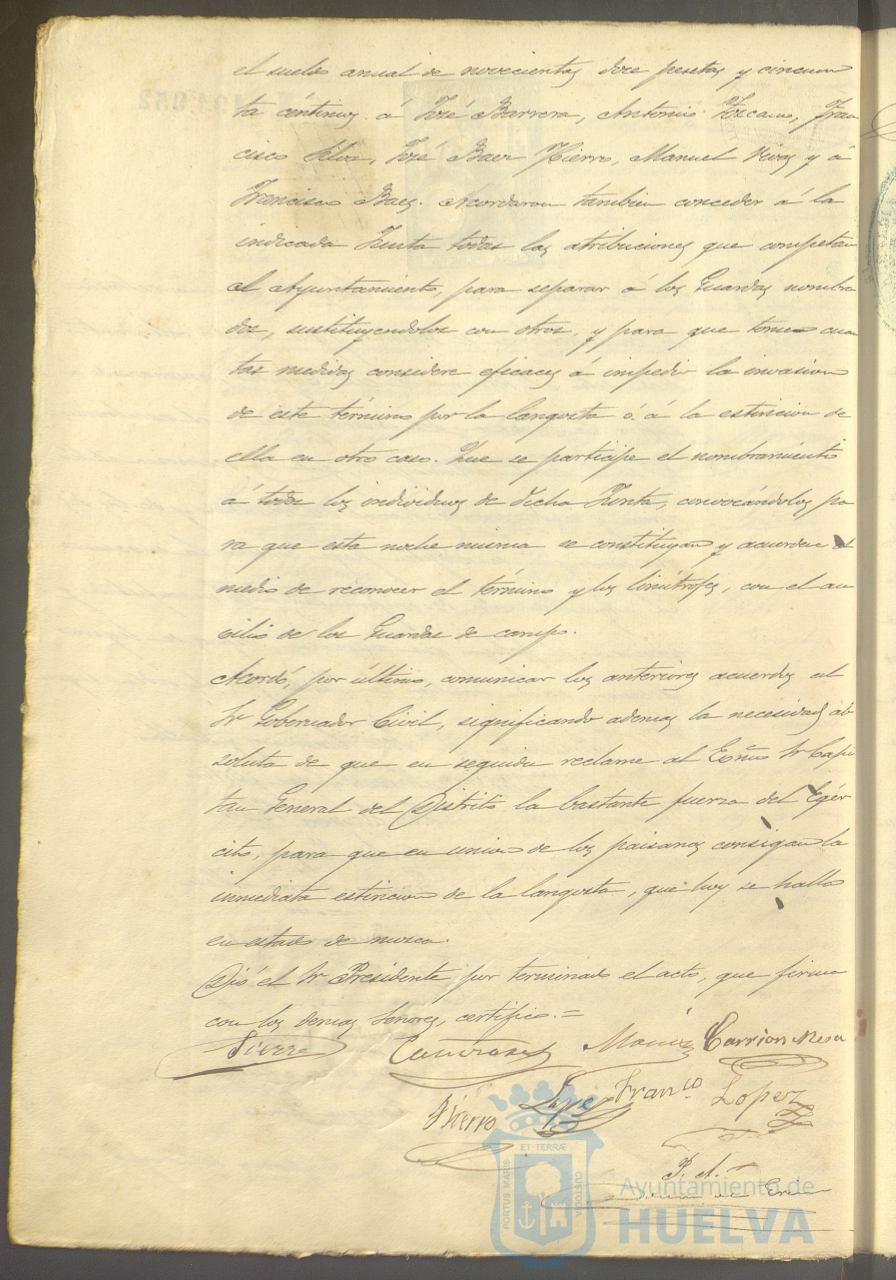 el sueldo anual de novecientas doce pesetas y cincuen
ta céntimos á José Barrera, Antonio Toscano, Fran
cisco Silva, José Baez Hierro, Manuel Rivas y á
Francisco Baez. Acordaron tambien conceder á la
indicada Junta todas las atribuciones que competan
al Ayuntamiento, para separar á los Guardas nombra
dos, sustituyendolos con otros, y para que tome cuan
tas medidas considere eficaces á impedir la invasion
de este término por la langosta ó á la estincion de
ella en otro caso. Que se participe el nombramiento
á todos los individuos de dicha Junta, convocándolos pa
ra que esta noche misma se constituyan y acuerden el
medio de reconocer el término y los limítrofes, con el au
silio de los Guardas de campo.
Acordó, por último, comunicar los anteriores acuerdos al
Sr Gobernador Civil, significando ademas la necesidad ab
soluta de que en seguida reclame al Exmo Sr Capi
tan General del Distrito la bastante fuerza del Egér
cito, para que en union de los paisanos consigan la
inmediata estincion de la langosta, que hoy se halla
en estado de mosca.
Dió el Sr Presidente por terminado el acto, que firma
con los demas Señores, certifico.=
Carrion Mesa
Hierro Lopez Franco Lopez
P. A.
PORTUS MARIS ET TERRÆ CUSTODIA
Ayuntamiento de
HUELVA